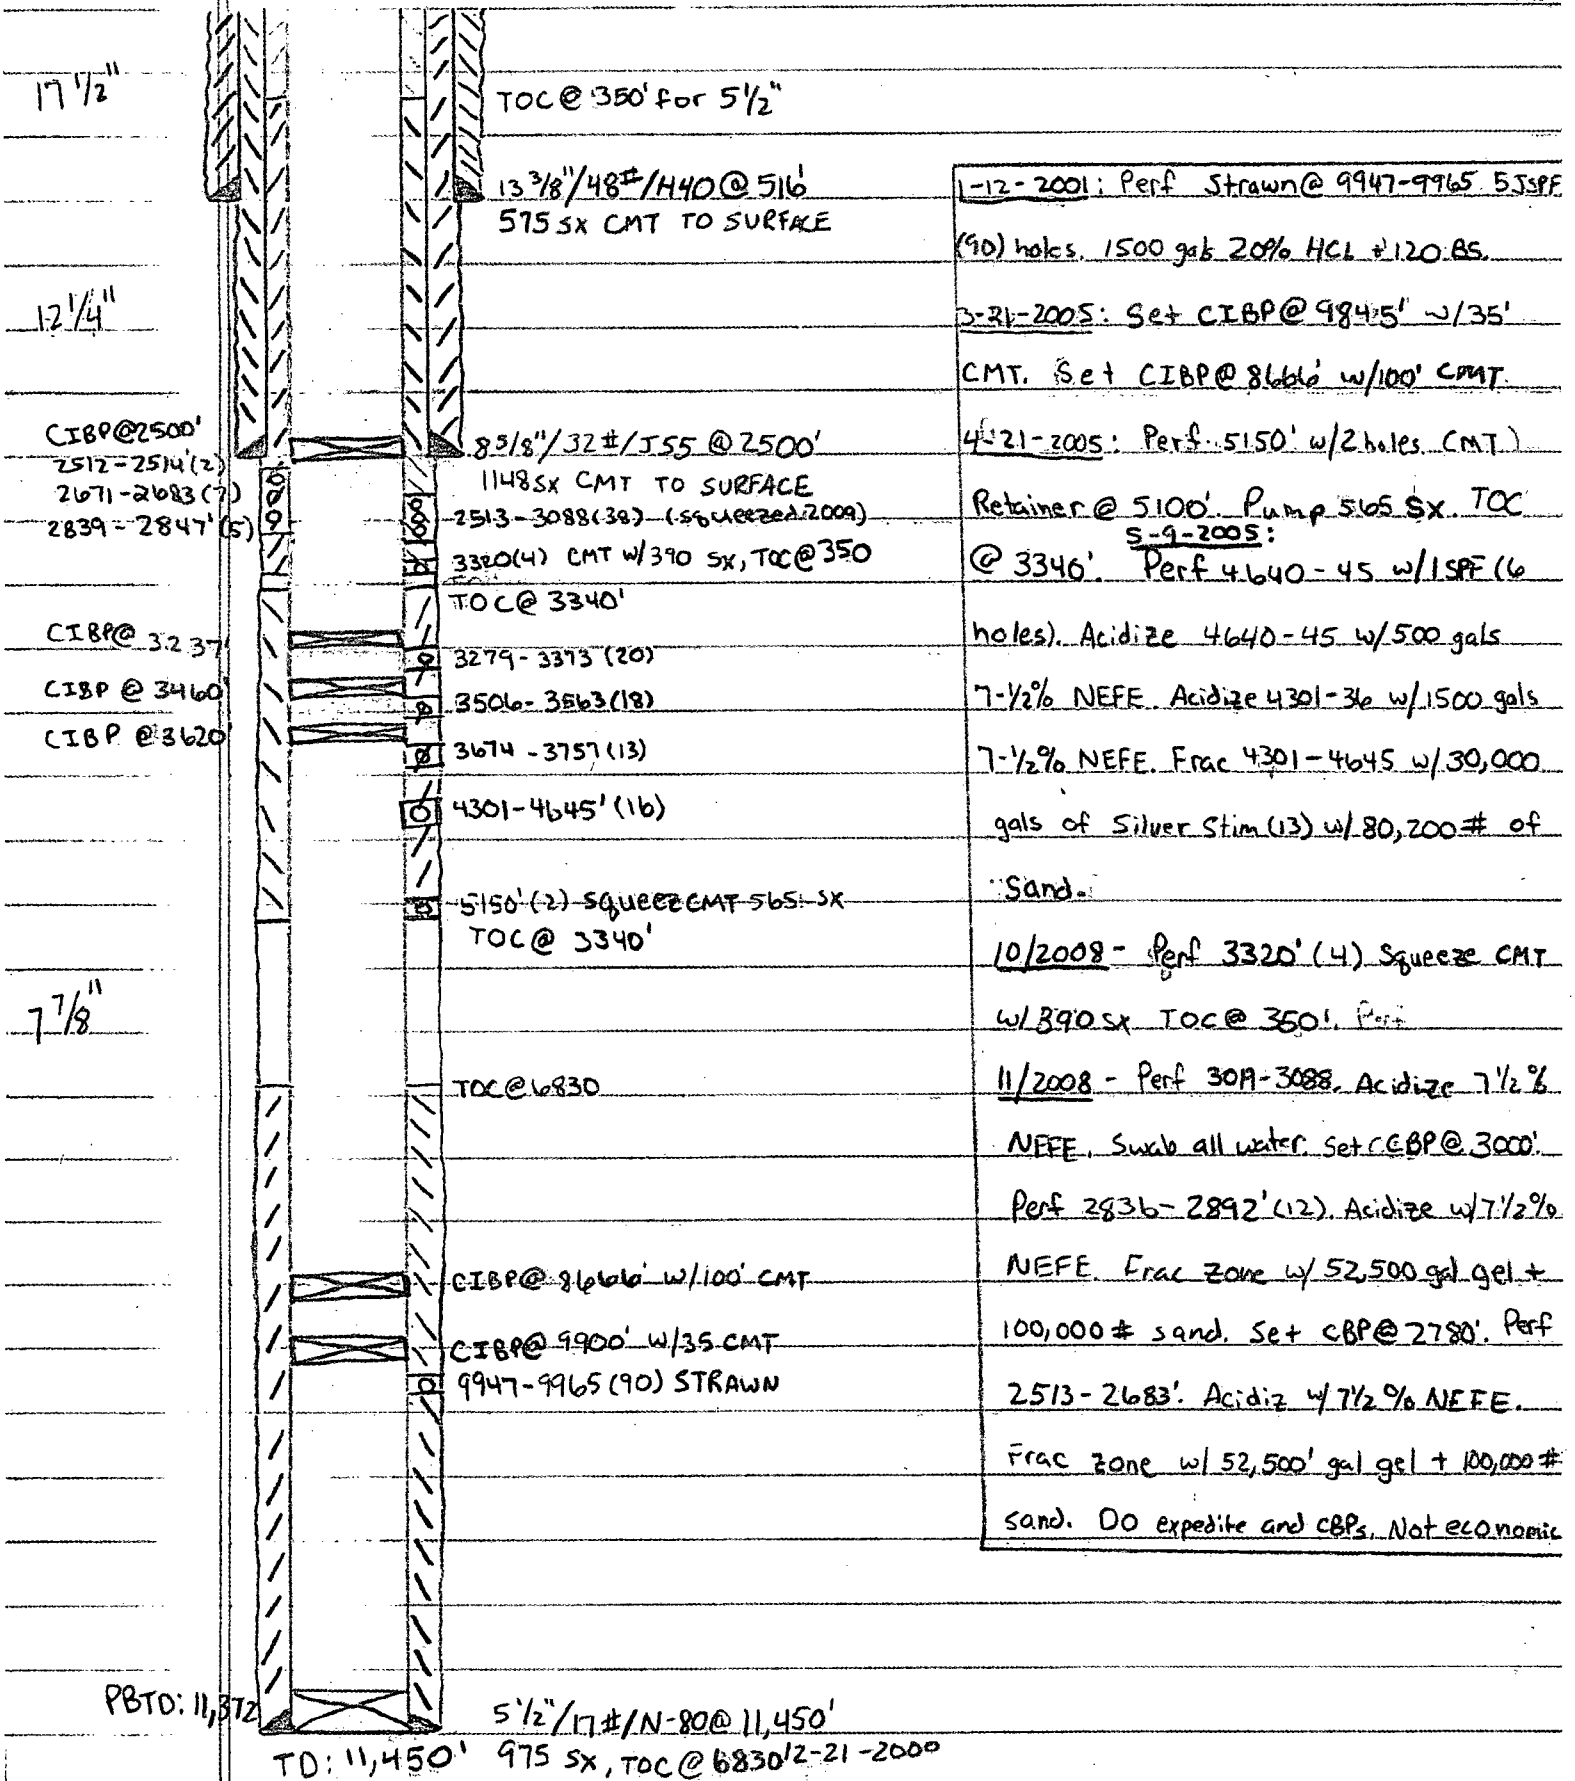 17 1/2"
TOC @ 350' for 5 1/2"
13 3/8"/48#/H40 @ 516'
575 SX CMT TO SURFACE
12 1/4"
CIBP@2500'
2512-2514'(2)
2671-2683(7)
2839-2847'(5)
8 5/8"/32#/J55 @ 2500'
1148 SX CMT TO SURFACE
2513-3088(38) (squeezed 2009)
3320(4) CMT W/390 SX, TOC@350
TOC@ 3340'
CIBP@ 3237'
3279-3373 (20)
CIBP @ 3460'
3506-3563(18)
CIBP @3620'
3674-3757(13)
4301-4645'(16)
5150'(2) SQUEEZ CMT 565 SX
TOC@ 3340'
7 7/8"
TOC@6830
CIBP@ 8666' W/100' CMT
CIBP@ 9900' W/35 CMT
9947-9965(90) STRAWN
PBTD: 11,372
5 1/2"/17#/N-80@ 11,450'
TD: 11,450' 975 SX, TOC@ 6830 12-21-2000
1-12-2001: Perf Strawn@ 9947-9965 5JSPF
(90) holes. 1500 gals 20% HCL + 120 BS.
3-21-2005: Set CIBP@ 9845' w/35'
CMT. Set CIBP@ 8666' w/100' CMT.
4-21-2005: Perf 5150' w/2 holes. CMT
Retainer @ 5100'. Pump 565 SX. TOC
5-9-2005:
@ 3340'. Perf 4640-45 w/1SPF (6
holes). Acidize 4640-45 w/500 gals
7-1/2% NEFE. Acidize 4301-36 w/1500 gals
7-1/2% NEFE. Frac 4301-4645 w/30,000
gals of Silver Stim (13) w/ 80,200 # of
Sand.
10/2008 - Perf 3320' (4) Squeeze CMT
w/390 sx TOC@ 350'. Perf
11/2008 - Perf -3088. Acidize 7 1/2 %
NEFE. Swab all water. Set CBP@ 3000'.
Perf 2836-2892' (12). Acidize w/7 1/2%
NEFE. Frac zone w/ 52,500 gal gel +
100,000 # sand. Set CBP@ 2780'. Perf
2513-2683'. Acidiz w/ 7 1/2 % NEFE.
Frac zone w/ 52,500' gal gel + 100,000 #
sand. DO expedite and CBPs. Not economic